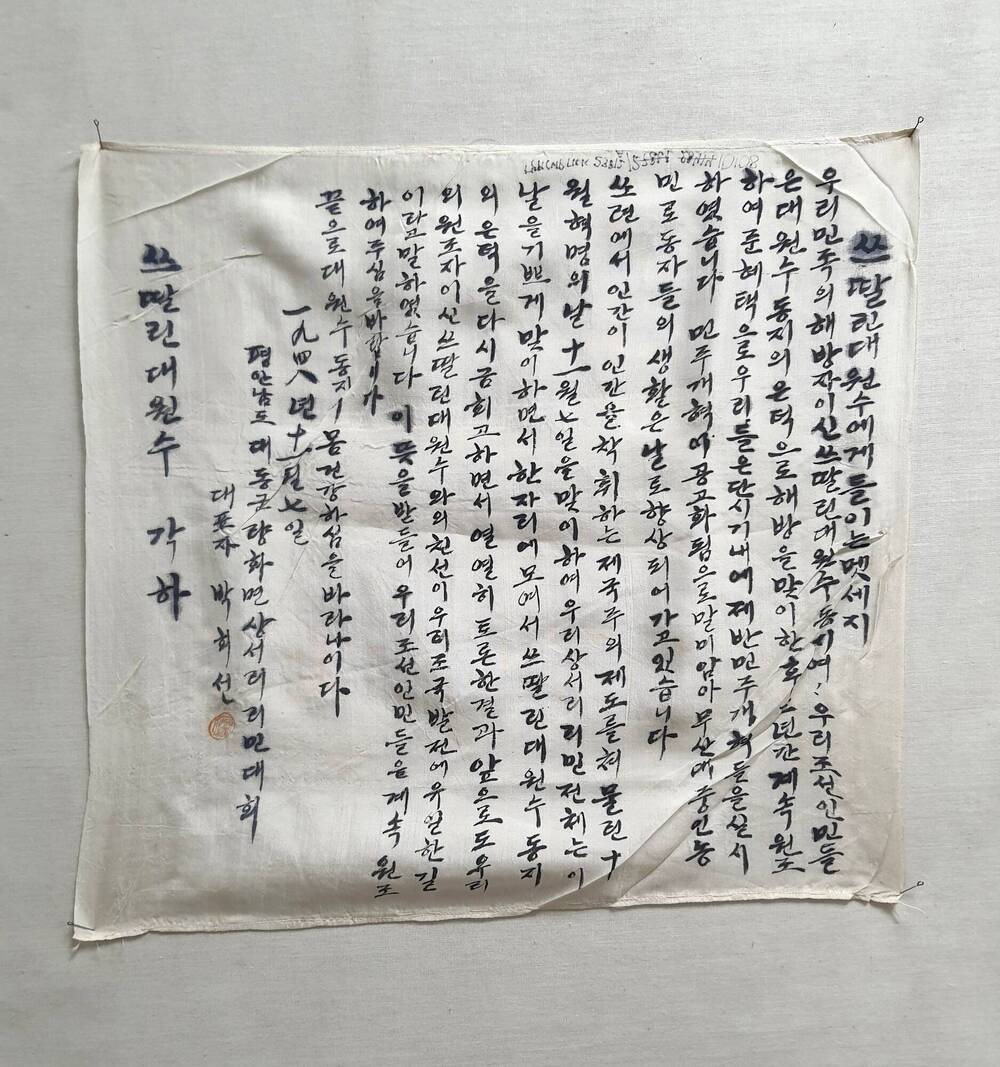 쓰딸린대원수에게들이는멧세지
우리민족의해방자이신쓰딸린대원수동지여! 우리조선인민들
은대원수동지의은덕으로해방을맞이한후 년간계속원조
하여준혜택으로우리들은단시기내에제반민주개혁들을실시
하였습니다 민주개혁이공고화됨으로말미암아무산대중인농
민로동자들의생활은날로향상되어가고있습니다
쏘련에서인간이인간을착취하는제국주의제도를쳐물린十
월혁명의날十一월七일을맞이하여우리상서리리민전체는이
날을기쁘게맞이하면서한자리에모여서쓰딸린대원수동지
의은덕을다시금회고하면서열열히토론한결과앞으로도우리
의원조자이신쓰딸린대원수와의친선이우리조국발전에유일한길
이라고말하였습니다 이뜻을받들어우리조선인민들을계속원조
하여주심을바랍니다
끝으로대원수동지ㅣ몸건강하심을바라나이다
一九四八년十一월七일
평안남도대동군량화면상서리리민대회
대표자 박희선
쓰딸린대원수 각하